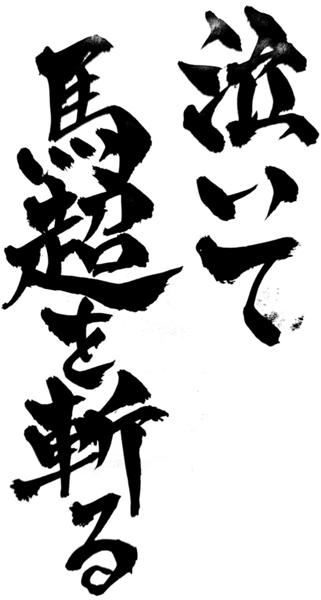 泣いて
馬超を斬る